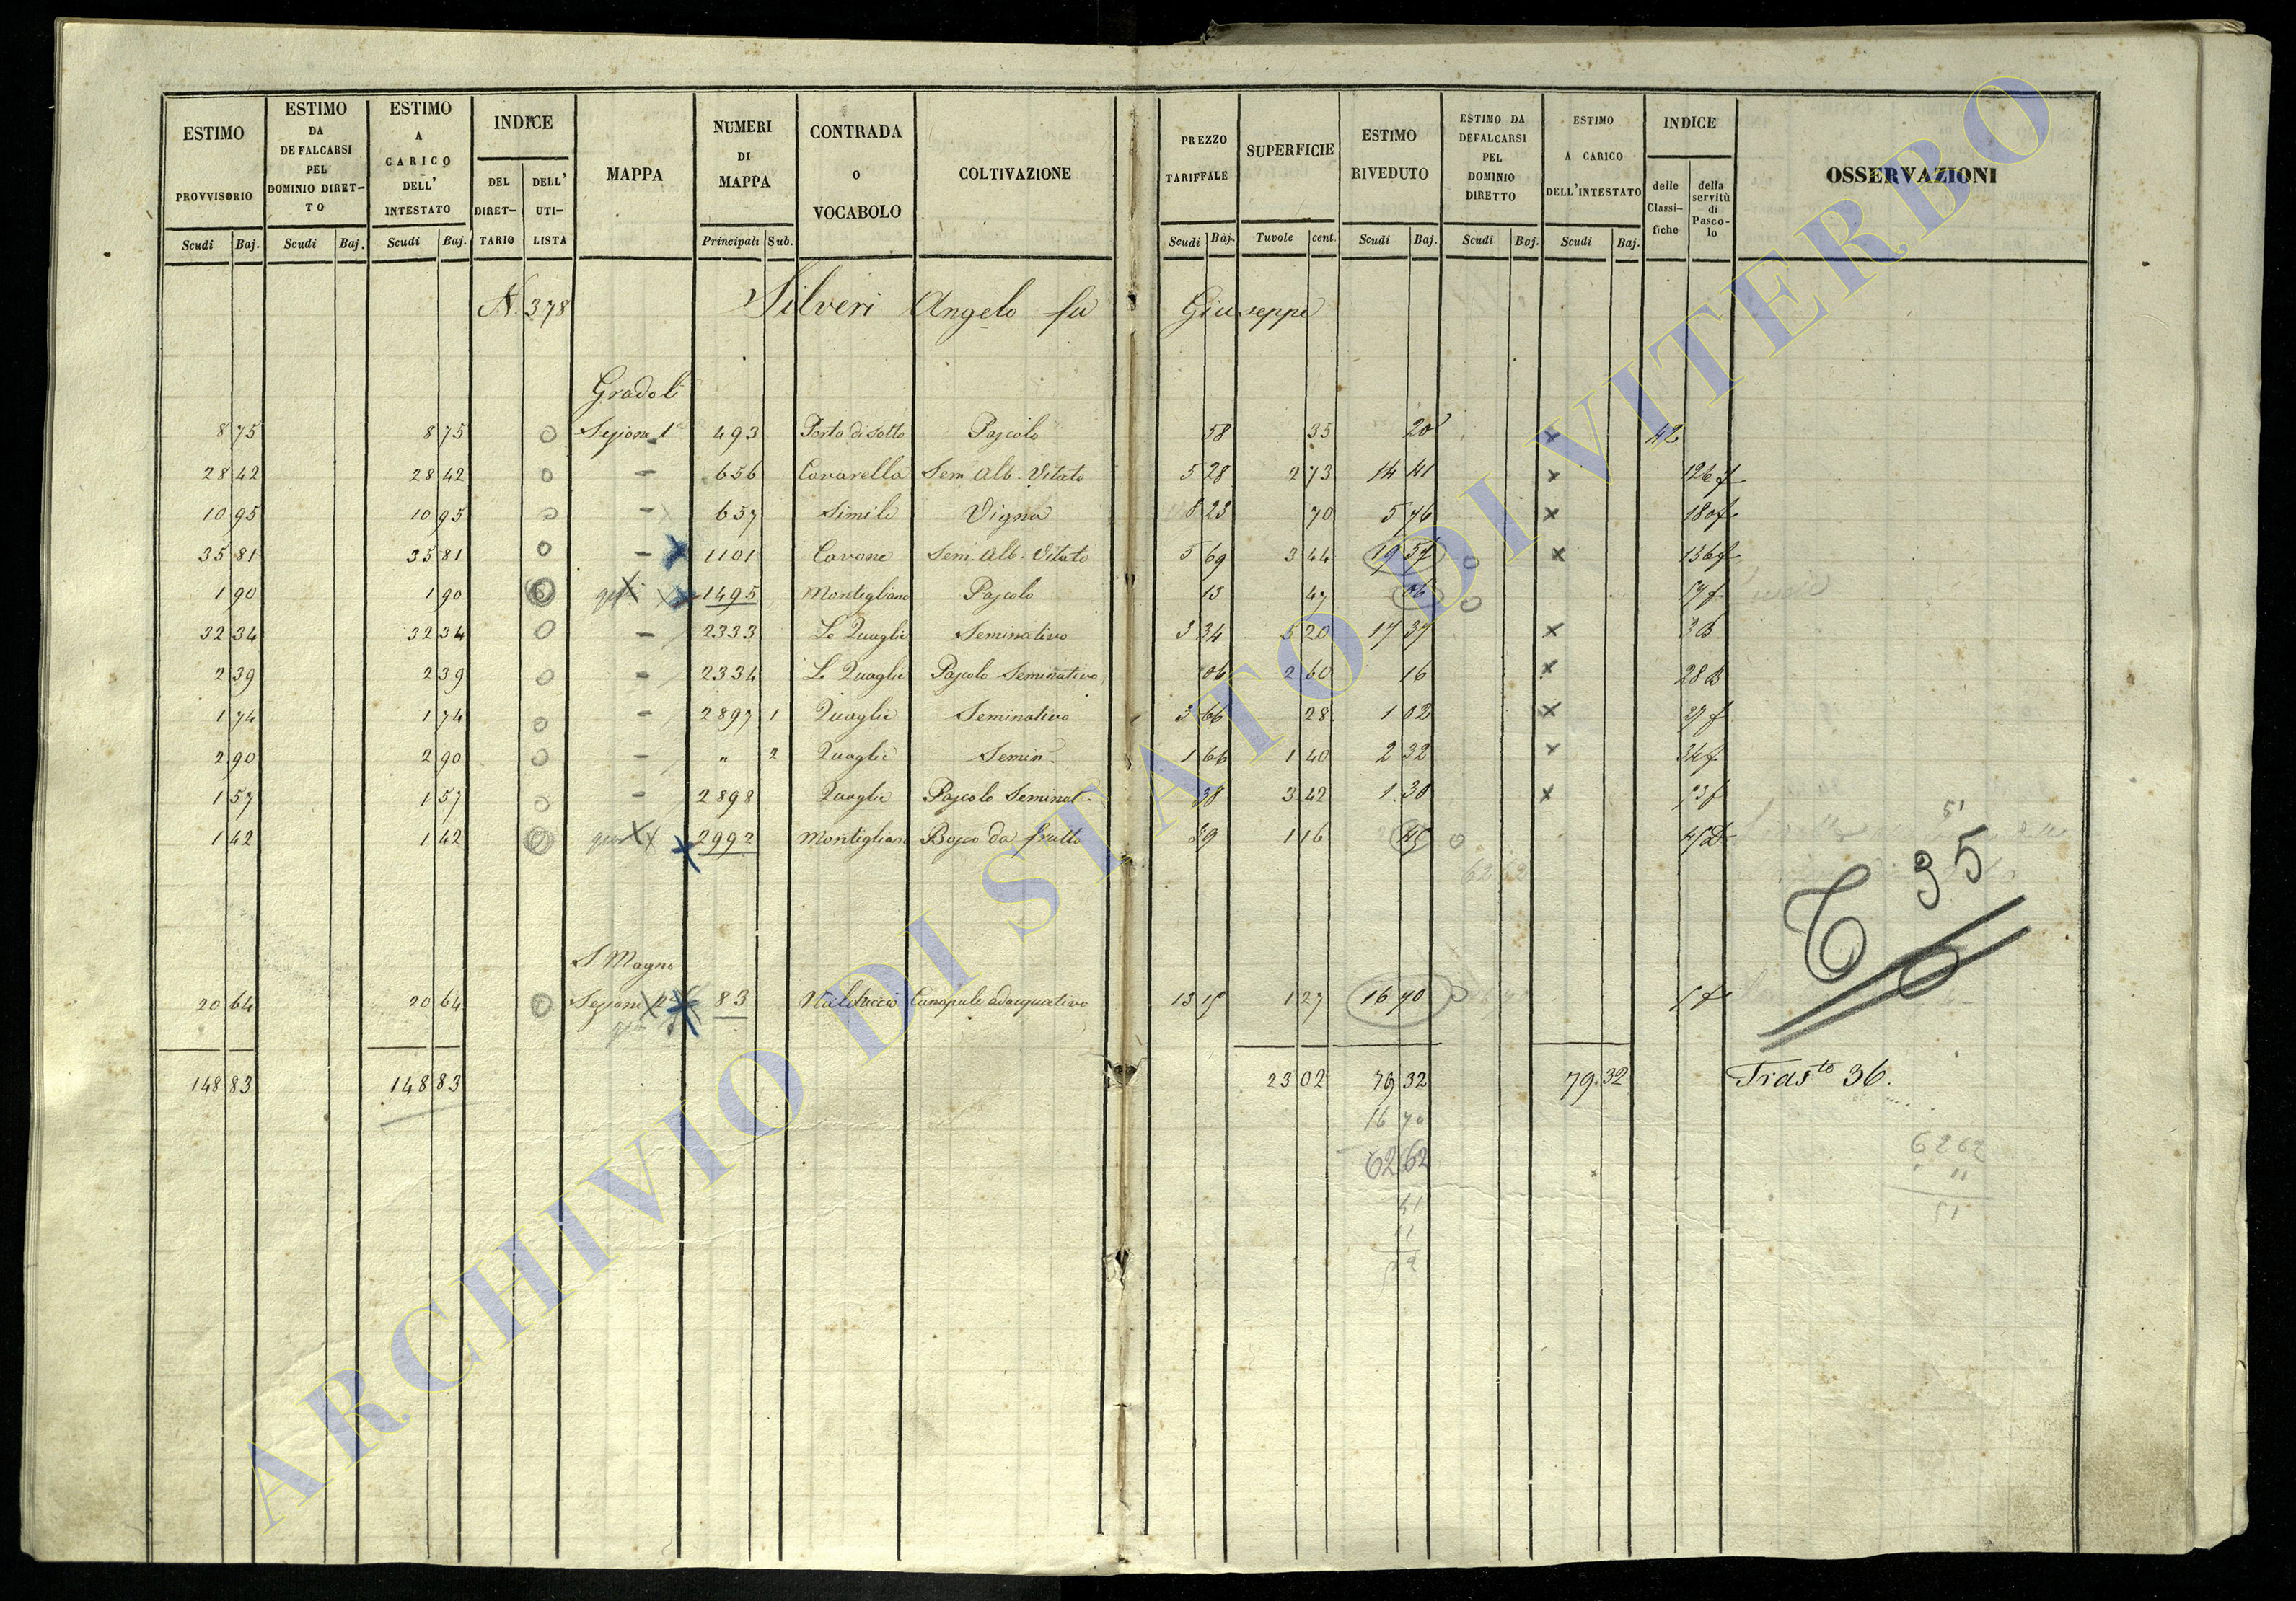 ESTIMO PROVVISORIO Scudi Baj. | ESTIMO DA DEFALCARSI PEL DOMINIO DIRET-TO Scudi Baj. | ESTIMO A CARICO DELL' INTESTATO Scudi Baj. | INDICE DEL DIRET-TARIO DELL' UTI-LISTA | MAPPA | NUMERI DI MAPPA Principali Sub. | CONTRADA O VOCABOLO | COLTIVAZIONE | PREZZO TARIFFALE Scudi Baj. | SUPERFICIE Tavole cent. | ESTIMO RIVEDUTO Scudi Baj. | ESTIMO DA DEFALCARSI PEL DOMINIO DIRETTO Scudi Baj. | ESTIMO A CARICO DELL'INTESTATO Scudi Baj. | INDICE delle Classi-fiche della servitù di Pasco-lo | OSSERVAZIONI
N. 378 Silveri Angelo fu Giuseppe
Gradoli
8 75 8 75 O Sezione 1a 493 Porta di Sotto Pascolo 58 35 20 x 42
28 42 28 42 O – 656 Cavarella Sem. Alb. Vitato 5 28 2 73 14 41 x 126 f
10 95 10 95 O – 657 Simile Vigna 8 23 70 5 76 x 180 f
35 81 35 81 O – x 1101 Cavone Sem. Alb. Vitato 5 69 3 44 19 57 O x 136 f
1 90 1 90 O x 1495 Montigliano Pascolo 13 47 06 O 17 f
32 34 32 34 O – 2333 Le Quaglie Seminativo 3 34 5 20 17 37 x 3 B
2 39 2 39 O – 2334 Le Quaglie Pascolo Seminativo 06 2 60 16 x 28 B
1 74 1 74 O – 2897 1 Quaglie Seminativo 3 66 28 1 02 x 27 f
2 90 2 90 O – " 2 Quaglie Semin. 1 66 1 40 2 32 x 34 f
1 57 1 57 O – 2898 Quaglie Pascolo Seminat. 38 3 42 1 30 x 23 f
1 42 1 42 O x 2992 Montigliano Bosco da frutto 39 1 16 45 O 45 D
62 62
51
35
S Magno
20 64 20 64 O Sezione x 83 Canapule adacquativo 13 15 1 27 16 70 O 1 f
148 83 148 83 23 02 79 32 79.32 Tras.to 36.
16 70
62 62
62 62
51
11
51
ARCHIVIO DI STATO DI VITERBO